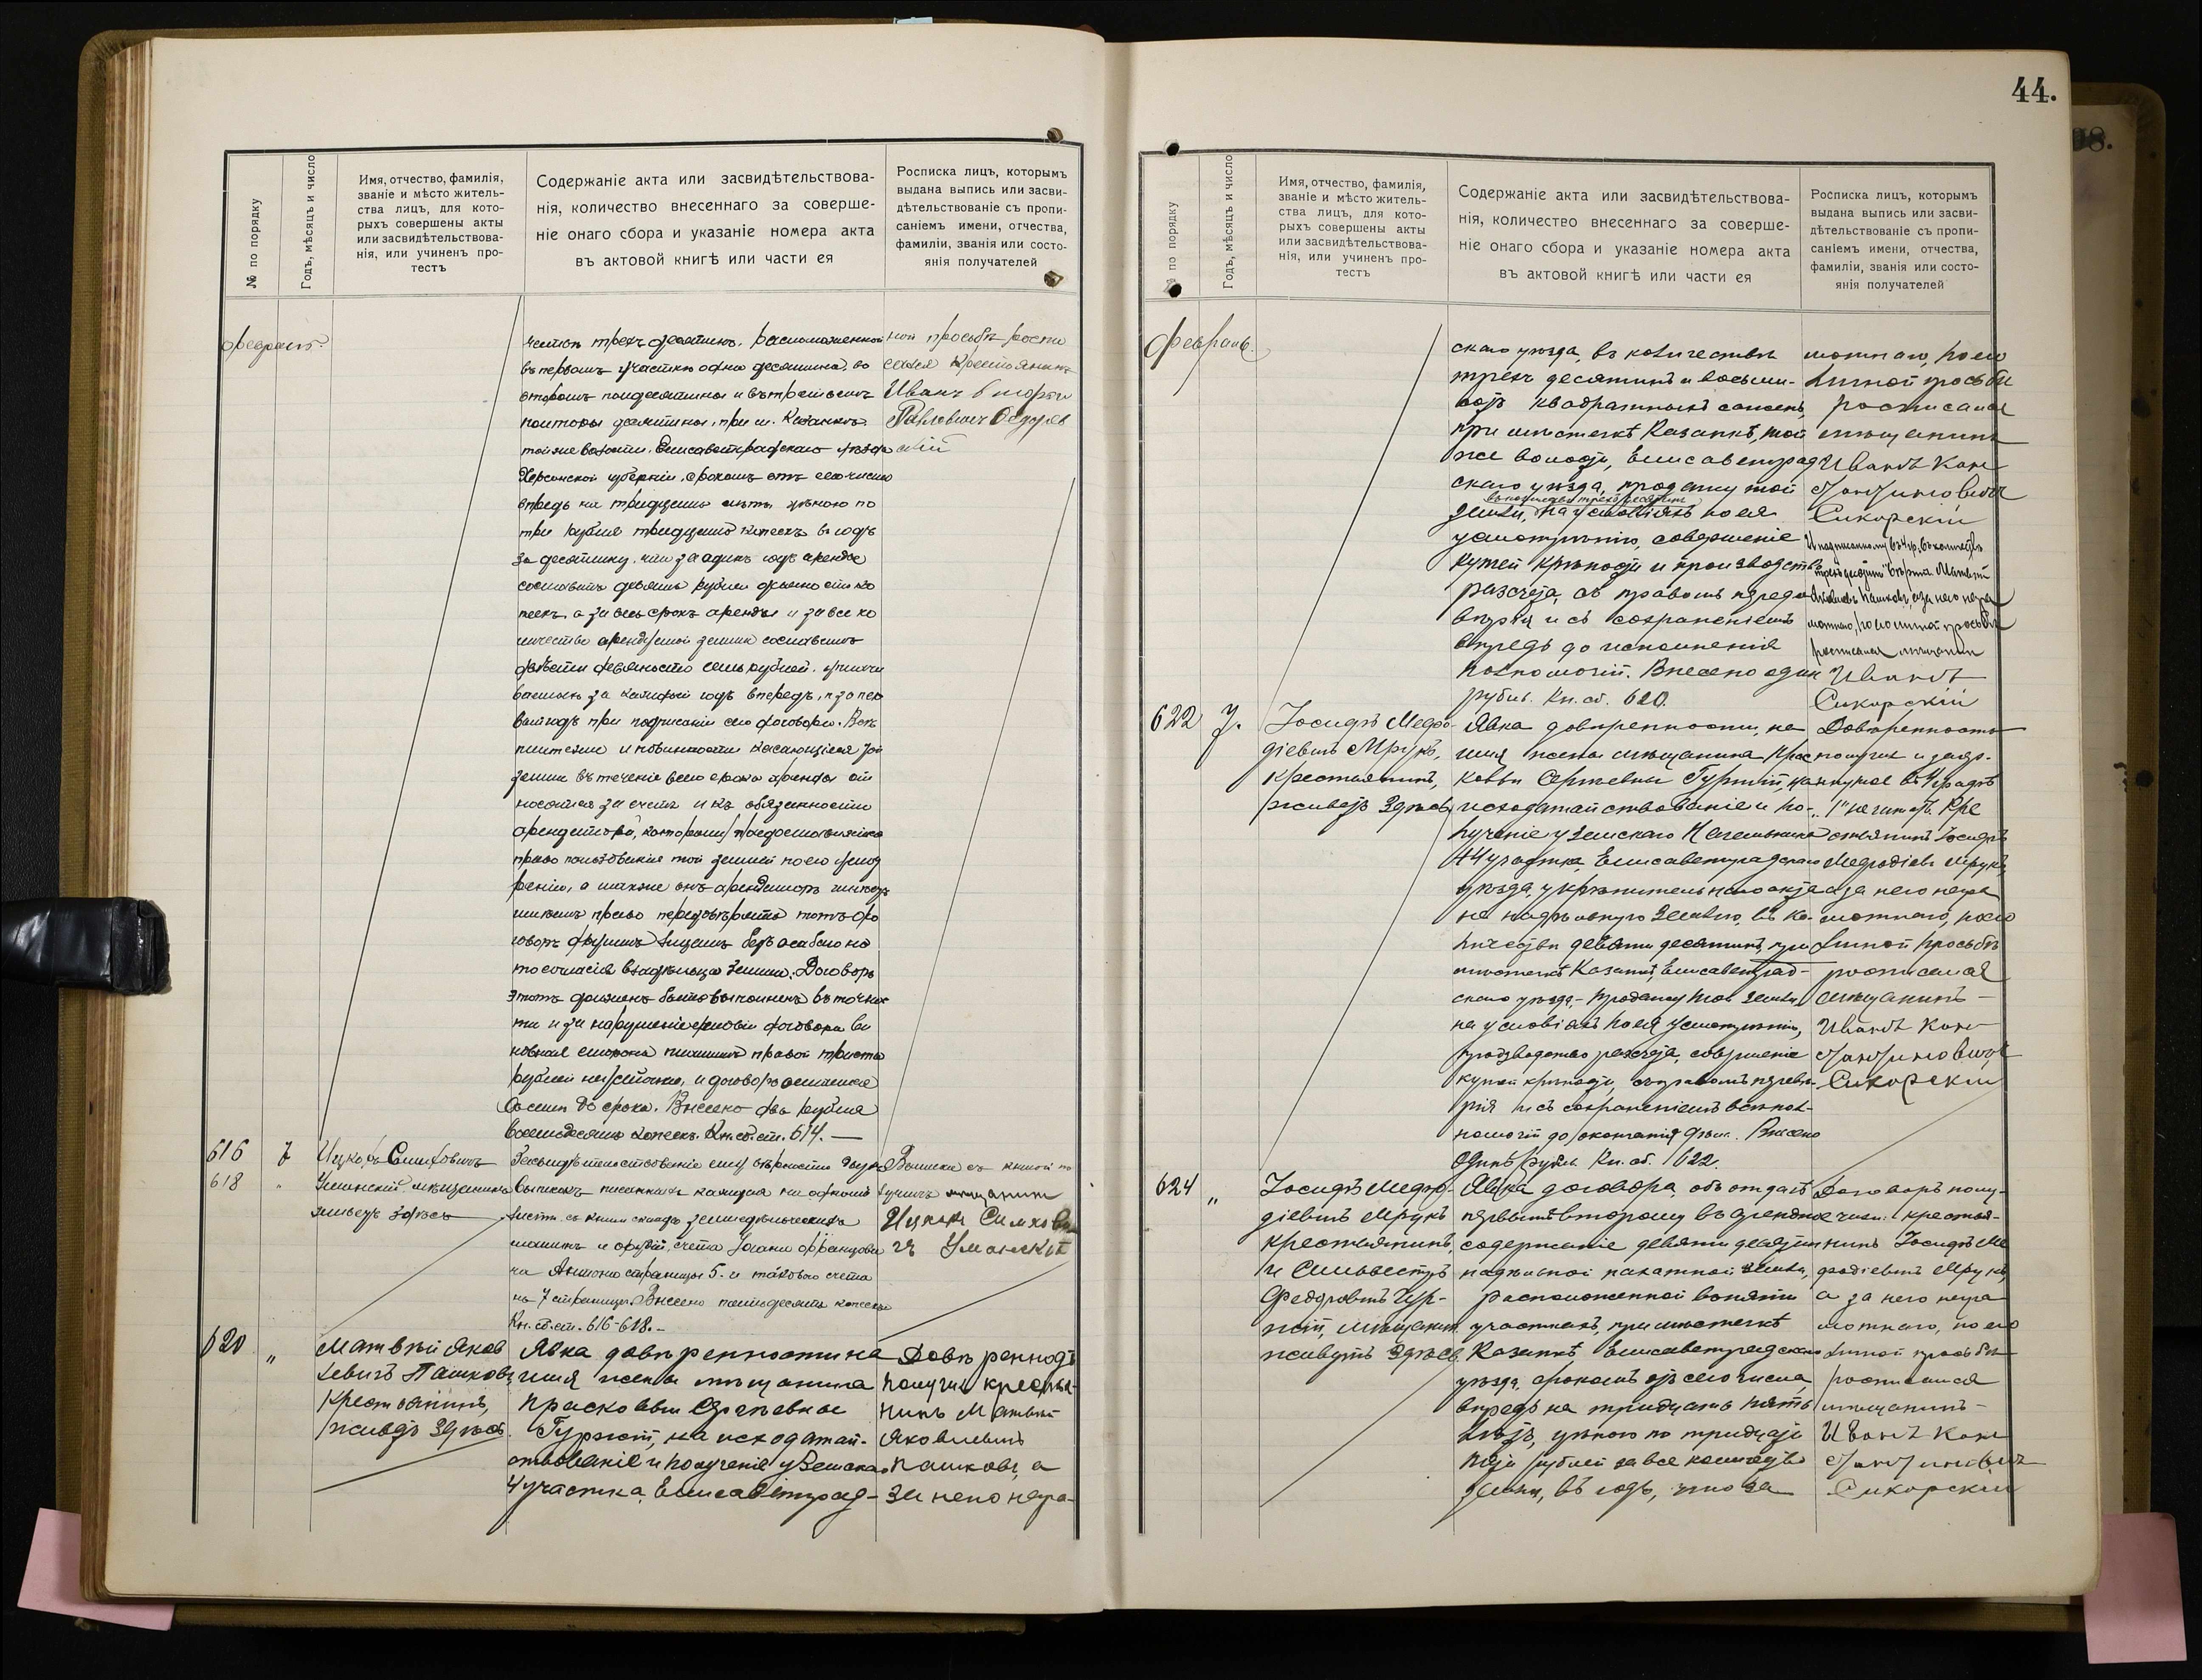 44.
№ по порядку
Годъ, мѣсяцъ и число
Имя, отчество, фамилія,
званіе и мѣсто житель-
ства лицъ, для кото-
рыхъ совершены акты
или засвидѣтельствова-
нія, или учиненъ про-
тестъ
Содержаніе акта или засвидѣтельствова-
нія, количество внесеннаго за соверше-
ніе онаго сбора и указаніе номера акта
въ актовой книгѣ или части ея
Росписка лицъ, которымъ
выдана выпись или засви-
дѣтельствованіе съ пропи-
саніемъ имени, отчества,
фамиліи, званія или состо-
янія получателей
февраль.
трехъ десятинъ, расположенной
въ первомъ участкѣ одна десятина, во
второмъ полдесятины и въ третьемъ
полторы десятины, при м. Казанкѣ
той же волости, Елисаветградскаго уѣзда
Херсонской губерніи, срокомъ отъ сего числа
впредь на тридцать лѣтъ цѣною по
три рубля тридцать копеекъ въ годъ
за десятину, или за одинъ годъ аренды
составитъ девять рублей девяносто ко
пеекъ, а за весь срокъ аренды и за все ко
личество арендуемой земли составитъ
двѣсти девяносто семь рублей,
за каждый годъ впередъ, а за пер
вый годъ при подписаніи сего договора. Всѣ
платежи и повинности касающіеся той
земли въ теченіе всего срока аренды от
носятся за счетъ и къ обязанности
арендатора, которому предоставляется
право пользованія той землей по его усмот
рѣнію, а также онъ арендаторъ
имѣетъ право передовѣрить тотъ до
говоръ другимъ лицамъ безъ особаго на
то согласія владѣльца земли. Договоръ
этотъ долженъ быть выполненъ въ точнос
ти и за нарушеніе условій договора ви
новная сторона платитъ правой триста
рублей неустойки, и договоръ остается
въ силѣ до срока. Внесено два рубля
восемьдесятъ копеекъ. Кн. сб. ст. 614.
ной просьбѣ роспи
сался крестьянинъ
Иванъ Григорій
Павловичъ
616
7
618
"
Ицко Симховичъ
Уманскій, мѣщанинъ
живетъ здѣсь
Засвидѣтельствованіе ему вѣрности двухъ
выписокъ писанныхъ каждая на одномъ
листѣ съ книги склада земледѣльческихъ
машинъ и орудій, счета Іоганна Францови
ча страницы 5. и таковаго счета
на 7 страницѣ. Внесено пятьдесятъ копеекъ
Кн. сб. ст. 616-618.
Выписки съ книги по
лучилъ мѣщанинъ
Ицко Симхови
чъ Уманскій
620
"
Матвѣй Яков
левичъ Пашковъ,
Крестьянинъ,
живетъ здѣсь
Явка довѣренности на
имя жены мѣщанина
Прасковьи Сергѣевны
Гуржій, на исходатай-
ствованіе и полученіе у Земскаго
4 участка, Елисаветград-
Довѣренность
получилъ крестья-
нинъ Матвѣй
Яковлевичъ
Пашковъ, а
за него негра-
№ по порядку
Годъ, мѣсяцъ и число
Имя, отчество, фамилія,
званіе и мѣсто житель-
ства лицъ, для кото-
рыхъ совершены акты
или засвидѣтельствова-
нія, или учиненъ про-
тестъ
Содержаніе акта или засвидѣтельствова-
нія, количество внесеннаго за соверше-
ніе онаго сбора и указаніе номера акта
въ актовой книгѣ или части ея
Росписка лицъ, которымъ
выдана выпись или засви-
дѣтельствованіе съ пропи-
саніемъ имени, отчества,
фамиліи, званія или состо-
янія получателей
февраль.
скаго уѣзда, въ количествѣ
трехъ десятинъ и восьми-
сотъ квадратныхъ сажень,
при мѣстечкѣ Казанкѣ, той
же волости, Елисаветград
скаго уѣзда, продажу той
въ количествѣ трехъ десятинъ
земли, на условіяхъ по ея
усмотрѣнію, совершеніе
купчей крѣпости и производство
разсчета, съ правомъ передо
вѣрія и съ сохраненіемъ
впредь до исполненія
полномочій. Внесено одинъ
рубль. Кн. сб. 620.
мотнаго, по его
личной просьбѣ
росписался
мѣщанинъ
Иванъ Кон
стантиновичъ
Сикорскій
трехъ десятинъ вѣрно. Матвѣй
Яковлевъ Пашковъ, а за него негра
мотнаго, по его личной просьбѣ
росписался мѣщанинъ
Иванъ
Сикорскій
622
7.
Іосифъ Мефо-
діевичъ Мрукъ,
Крестьянинъ,
живетъ здѣсь
Явка довѣренности, на
имя жены мѣщанина Прас
ковьи Сергѣевны Гуржій, на
исходатайствованіе и по-
лученіе у Земскаго Начальника
4 участка, Елисаветградскаго
уѣзда, укрѣпительнаго акта
на надѣльную землю, въ ко-
личествѣ девяти десятинъ, при
мѣстечкѣ Казанкѣ, Елисаветград-
скаго уѣзда, продажу той земли
на условіяхъ по ея усмотрѣнію,
производство разсчета, совершеніе
купчей крѣпости, съ правомъ передовѣ-
рія и съ сохраненіемъ всѣхъ пол-
номочій до окончанія дѣла. Внесено
одинъ рубль. Кн. сб. 622.
Довѣренность
получилъ и зачер-
кнутое въ 4 графѣ
"1" не читать. Кре
стьянинъ Іосифъ
Мефодіевъ Мрукъ,
а за него негра
мотнаго, по его
личной просьбѣ
росписался
мѣщанинъ
Иванъ Кон-
стантиновичъ
Сикорскій
624
"
Іосифъ Мефо-
діевичъ Мрукъ
крестьянинъ,
и Сильвестръ
Федоровичъ Гур-
жій, мѣщанинъ
живутъ здѣсь.
Явка договора, объ отдачѣ
первымъ второму въ арендное
содержаніе девяти десятинъ
надѣльной пахатной земли,
расположенной въ пяти
участкахъ, при мѣстечкѣ
Казанкѣ, Елисаветградскаго
уѣзда, срокомъ отъ сего числа,
впредь на тридцать пять
лѣтъ, цѣною по тридцати
пяти рублей за все количество
земли, въ годъ, что за
Договоръ полу-
чили: крестья-
нинъ Іосифъ Ме
фодіевичъ Мрукъ,
а за него негра
мотнаго, по его
личной просьбѣ
росписался
мѣщанинъ
Иванъ Кон
стантиновичъ
Сикорскій